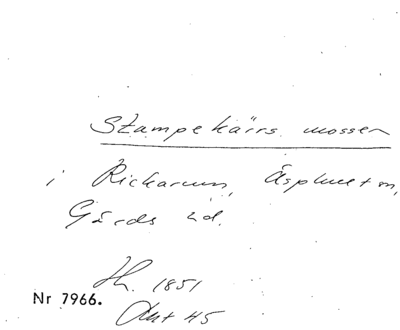 Stampekärrs mossen
i Rickarum, Äsphult sn,
Gärds hd.
Jh. 1851
Nr 7966.
Akt 45